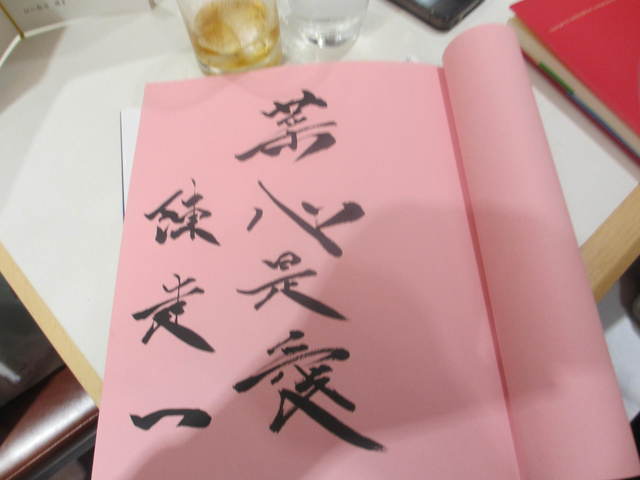 菜心是愛
陳建一